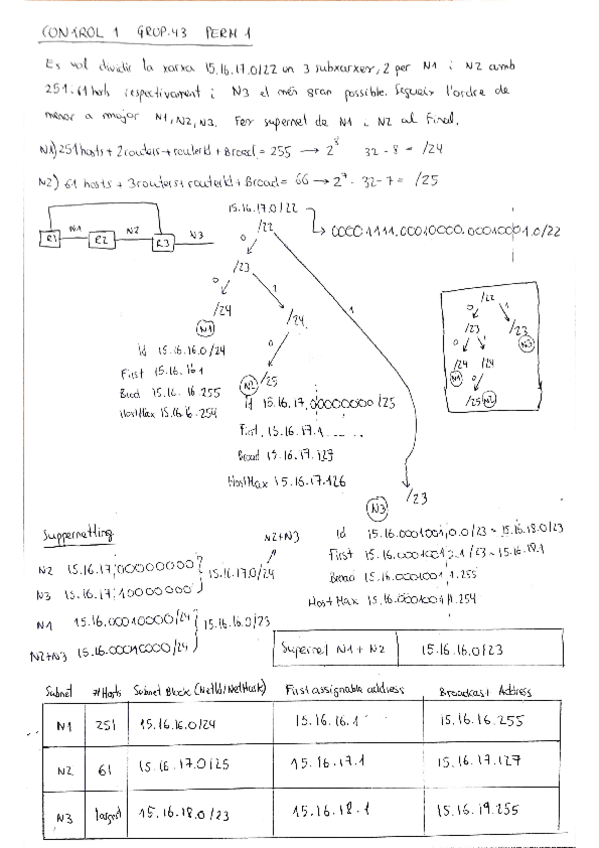 CONTROL 1 GRUP.43 PERM 1
Es vol dividir la xarxa 15.16.17.0/22 en 3 subxarxes, 2 per N1 i N2 amb
251 i 61 hosts respectivament i N3 el més gran possible. Segueix l'ordre de
menor a major N1, N2, N3. Fer supernet de N1 i N2 al final.
N1) 251 hosts + 2 routers + routerId + Broad = 255 → 2^8 32 - 8 = /24
N2) 61 hosts + 3 routers + routerId + Broad = 66 → 2^7 - 32-7 = /25
R1 N1 R2 N2 R3 N3
15.16.17.0/22
00001111.00010000.00010001.0/22
/22
0
1
/23
0
1
/24
N1
/24
0
/25
N2
/22
0 1
/23 /23
N3
0 1
/24 /24
N1
0
/25 N2
Id 15.16.16.0/24
First 15.16.16.1
Broad 15.16.16.255
HostMax 15.16.16.254
Id 15.16.17.00000000/25
First. 15.16.17.1
Broad 15.16.17.127
HostMax 15.16.17.126
/23
N3
Id 15.16.0001001,0.0/23 ~ 15.16.18.0/23
First 15.16.0001001,0.1/23 ~ 15.16.18.1
Broad 15.16.0001001,1.255
Host Max 15.16.0001001,1.254
Suppernetting
N2 15.16.17.00000000
N3 15.16.17.10000000
15.16.17.0/24
N2+N3
N1 15.16.00010000/24
N2+N3 15.16.00010000/24
15.16.16.0/23
Supernet N1 + N2 15.16.16.0/23
Subnet #Hosts Subnet Block (NetId/NetMask) First assignable address Broadcast Address
N1 251 15.16.16.0/24 15.16.16.1 15.16.16.255
N2 61 15.16.17.0/25 15.16.17.1 15.16.17.127
N3 largest 15.16.18.0/23 15.16.18.1 15.16.19.255